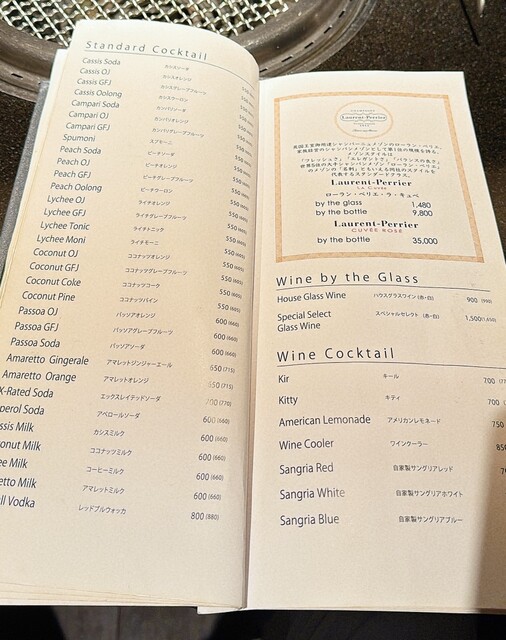 Standard Cocktail
Cassis Soda カシスソーダ
Cassis OJ カシスオレンジ
Cassis GFJ カシスグレープフルーツ
Cassis Oolong カシスウーロン
Campari Soda カンパリソーダ
Campari OJ カンパリオレンジ
Campari GFJ カンパリグレープフルーツ
Spumoni スプモーニ
Peach Soda ピーチソーダ
Peach OJ ピーチオレンジ
Peach GFJ ピーチグレープフルーツ
Peach Oolong ピーチウーロン
Lychee OJ ライチオレンジ 550
Lychee GFJ ライチグレープフルーツ 550
Lychee Tonic ライチトニック 550
Lychee Moni ライチモーニ 550 (605)
Coconut OJ ココナッツオレンジ 550 (605)
Coconut GFJ ココナッツグレープフルーツ 550 (605)
Coconut Coke ココナッツコーク 550 (605)
Coconut Pine ココナッツパイン 550 (605)
Passoa OJ パッソアオレンジ 600 (660)
Passoa GFJ パッソアグレープフルーツ 600 (660)
Passoa Soda パッソアソーダ 600 (660)
Amaretto Gingerale アマレットジンジャーエール 650 (715)
Amaretto Orange アマレットオレンジ 650 (715)
X-Rated Soda エックスレイテッドソーダ 700 (770)
perol Soda アペロールソーダ 600 (660)
ssis Milk カシスミルク 600 (660)
onut Milk ココナッツミルク 600 (660)
ee Milk コーヒーミルク 600 (660)
etto Milk アマレットミルク 600 (660)
ll Vodka レッドブルウォッカ 800 (880)
CHAMPAGNE
Laurent-Perrier
英国王室御用達シャンパーニュメゾンのローラン・ペリエ。
家族経営のシャンパンメゾンとして第1位の規模を誇る。
メゾンスタイルは
「フレッシュさ」「エレガントさ」「バランスの良さ」
世界5位の大手シャンパンメゾン「ローラン・ペリエ」
のメゾンの「名刺」ともいえる同社のスタイルを
代表するスタンダードアラカルト。
Laurent-Perrier
LA CUVÉE
ローラン・ペリエ・ラ・キュベ
by the glass 1,480
by the bottle 9,800
Laurent-Perrier
CUVÉE ROSÉ
by the bottle 35,000
Wine by the Glass
House Glass Wine ハウスグラスワイン (赤・白) 900 (990)
Special Select スペシャルセレクト (赤・白) 1,500 (1,650)
Glass Wine
Wine Cocktail
Kir キール 700
Kitty キティ 700
American Lemonade アメリカンレモネード 750
Wine Cooler ワインクーラー 850
Sangria Red 自家製サングリアレッド
Sangria White 自家製サングリアホワイト
Sangria Blue 自家製サングリアブルー